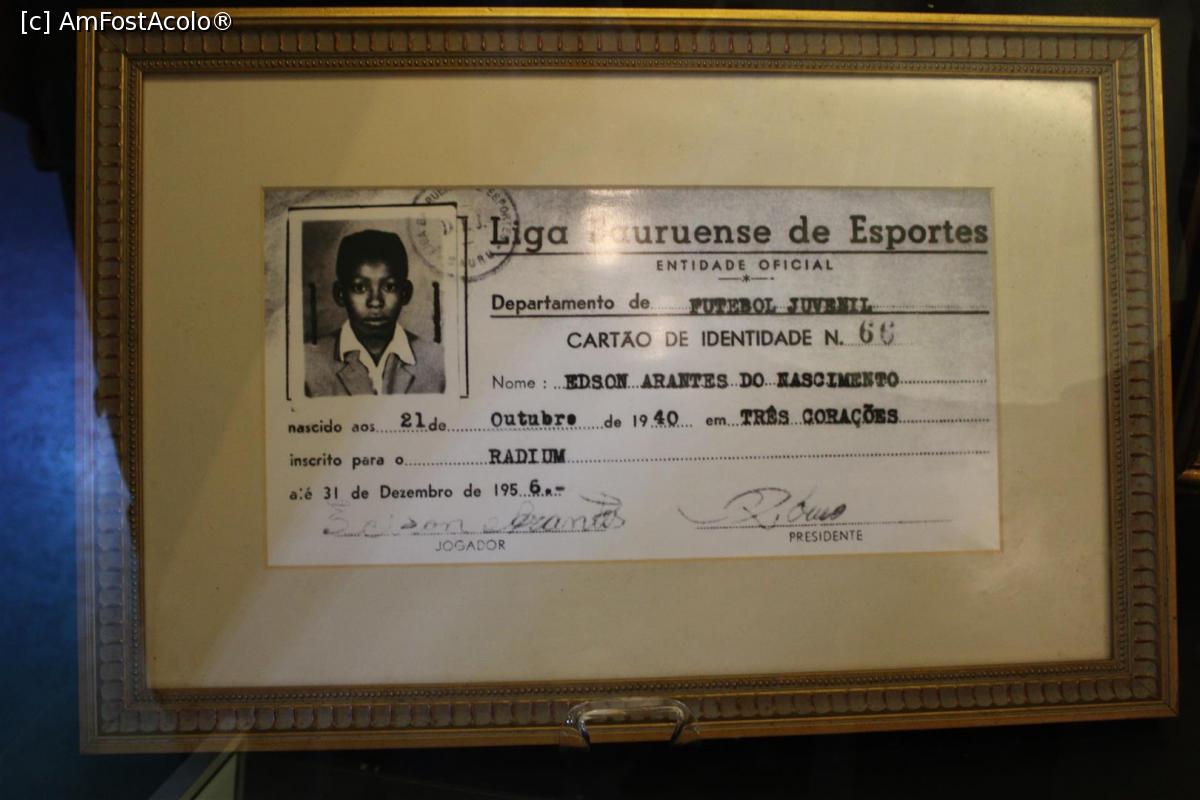 [c] AmFostAcolo®
Liga Bauruense de Esportes
ENTIDADE OFICIAL
Departamento de FUTEBOL JUVENIL
CARTÃO DE IDENTIDADE N. 66
Nome : EDSON ARANTES DO NASCIMENTO
nascido aos 21 de Outubro de 1940 em TRÊS CORAÇÕES
inscrito para o RADIUM
até 31 de Dezembro de 1956.-
Edson Arantes
JOGADOR
PRESIDENTE